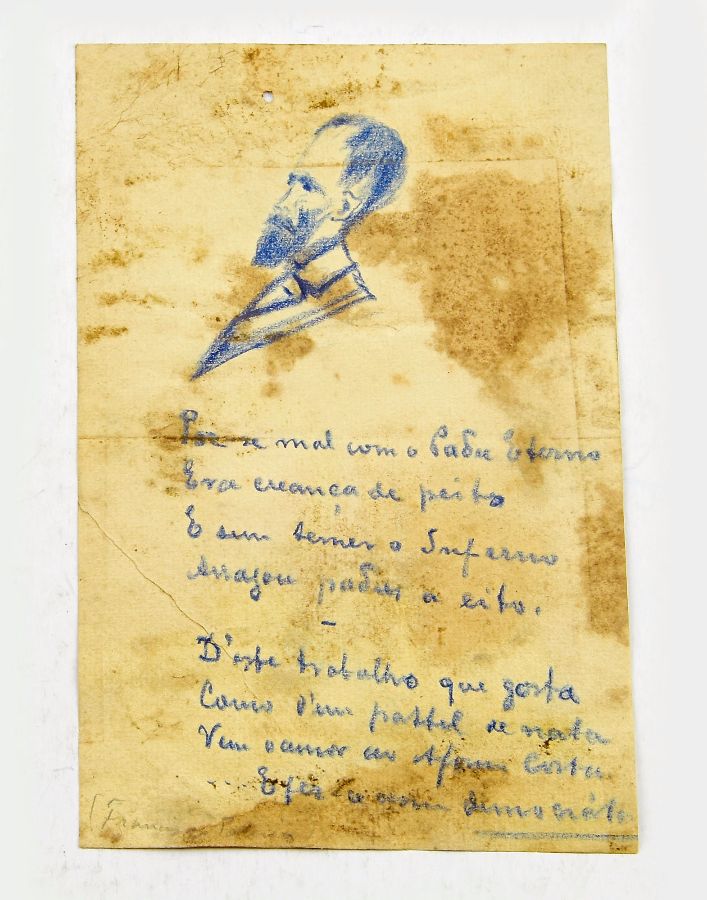 Poz-se mal com o Padre Eterno
Era creança de peito
E sem temer o Inferno
Arrazou padres a eito.
–
D'este trabalho que gosta
Como d'um pastel de nata
Vem o amor ao Afonso Costa
E fez-o assim democráta
(Francisco